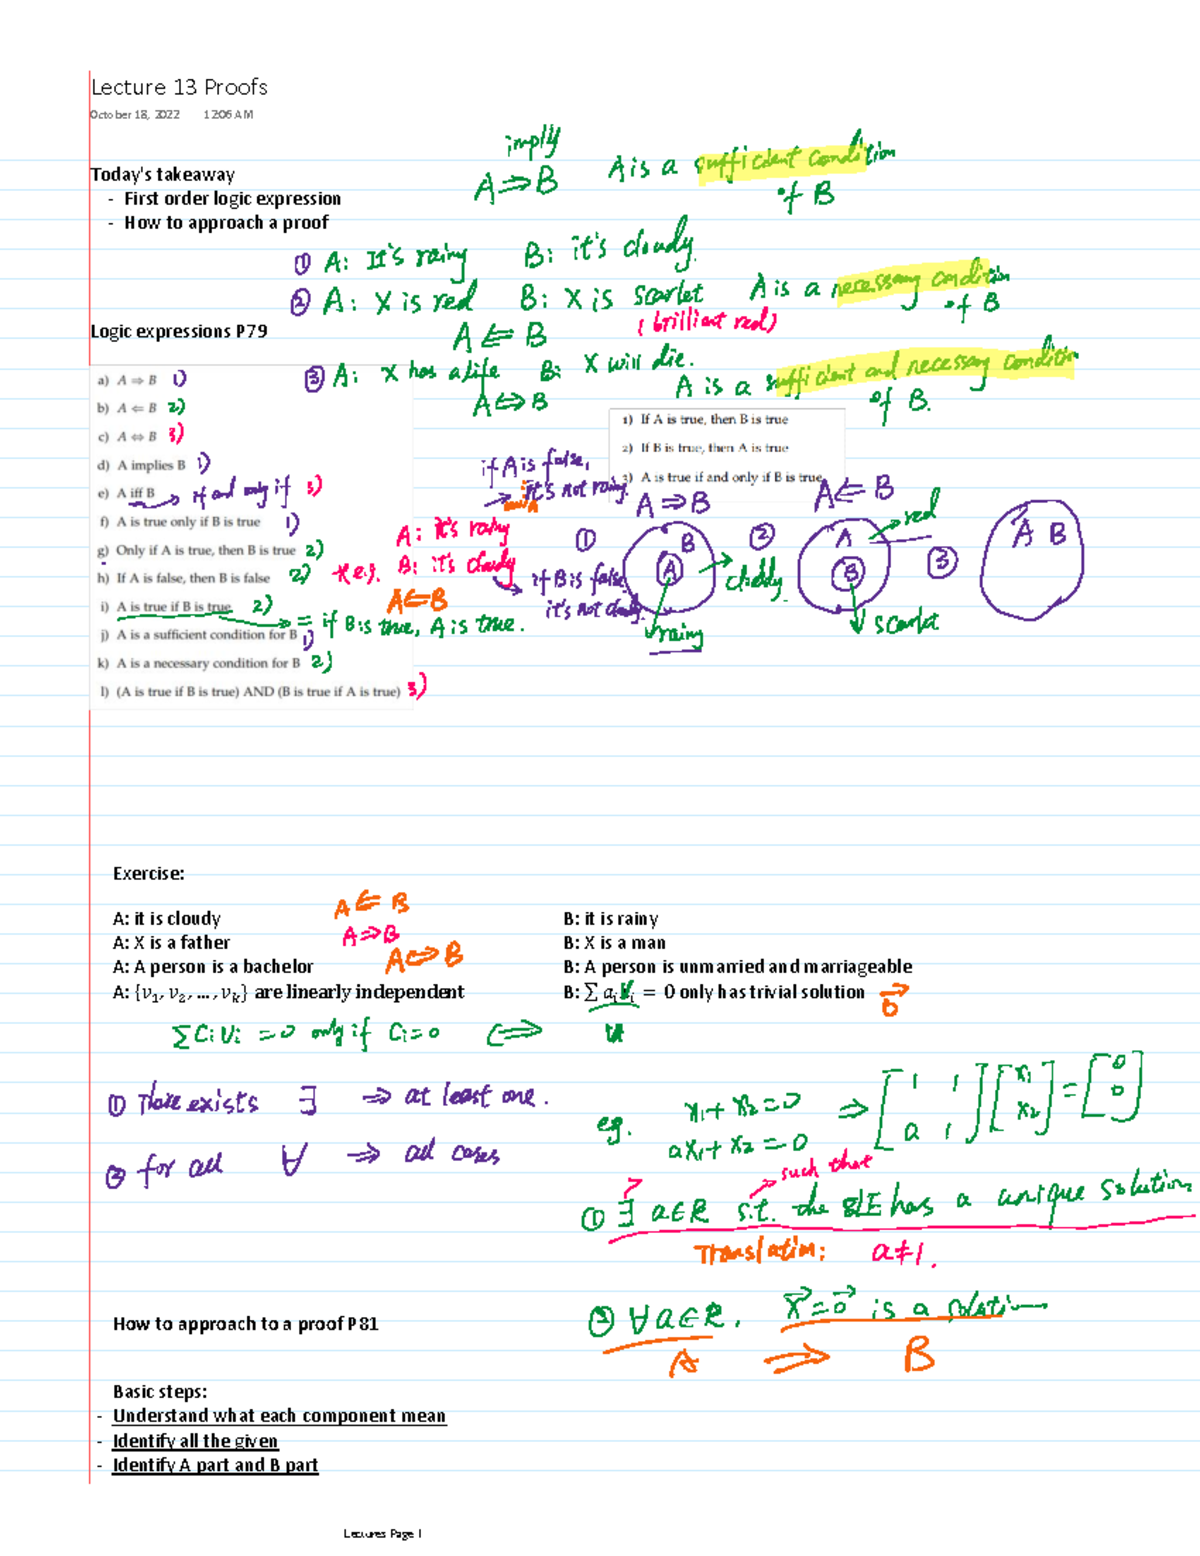 Lecture 13 Proofs
October 18, 2022 12:06 AM
imply
A ⇒ B A is a sufficient condition
of B
Today's takeaway
- First order logic expression
- How to approach a proof
① A: It's rainy B: it's cloudy.
② A: X is red B: X is scarlet A is a necessary condition
(brilliant red) of B
Logic expressions P79
A ⇐ B
③ A: X has a life B: X will die.
A is a sufficient and necessary condition
A ⇔ B of B.
a) A ⇒ B 1)
b) A ⇐ B 2)
c) A ⇔ B 3)
d) A implies B 1)
e) A iff B → if and only if 3)
f) A is true only if B is true 1)
g) Only if A is true, then B is true 2)
h) If A is false, then B is false 2)
i) A is true if B is true 2)
= if B is true, A is true.
j) A is a sufficient condition for B 1)
k) A is a necessary condition for B 2)
l) (A is true if B is true) AND (B is true if A is true) 3)
1) If A is true, then B is true
2) If B is true, then A is true
3) A is true if and only if B is true
if A is false,
it's not rainy.
*e.g. A: it's rainy
B: it's cloudy
A ⇐ B
if B is false,
it's not cloudy.
① A ⇒ B
B
A
cloudy
rainy
② A ⇐ B
A
B
red
scarlet
③ A B
Exercise:
A: it is cloudy A ⇐ B B: it is rainy
A: X is a father A ⇒ B B: X is a man
A: A person is a bachelor A ⇔ B B: A person is unmarried and marriageable
A: {v₁, v₂, ..., vₖ} are linearly independent B: ∑ aᵢVᵢ = 0 only has trivial solution
∑CᵢVᵢ = 0 only if Cᵢ = 0 ⇔
① There exists ∃ ⇒ at least one.
② for all ∀ ⇒ all cases
eg. x₁ + x₂ = 0
ax₁ + x₂ = 0
⇒ [1 1; a 1] [x₁; x₂] = [0; 0]
such that
① ∃ a∈R s.t. the SLE has a unique solution
Translation: a≠1.
② ∀a∈R, x⃗ = 0⃗ is a solution
A ⇒ B
How to approach to a proof P81
Basic steps:
- Understand what each component mean
- Identify all the given
- Identify A part and B part
Lectures Page 1